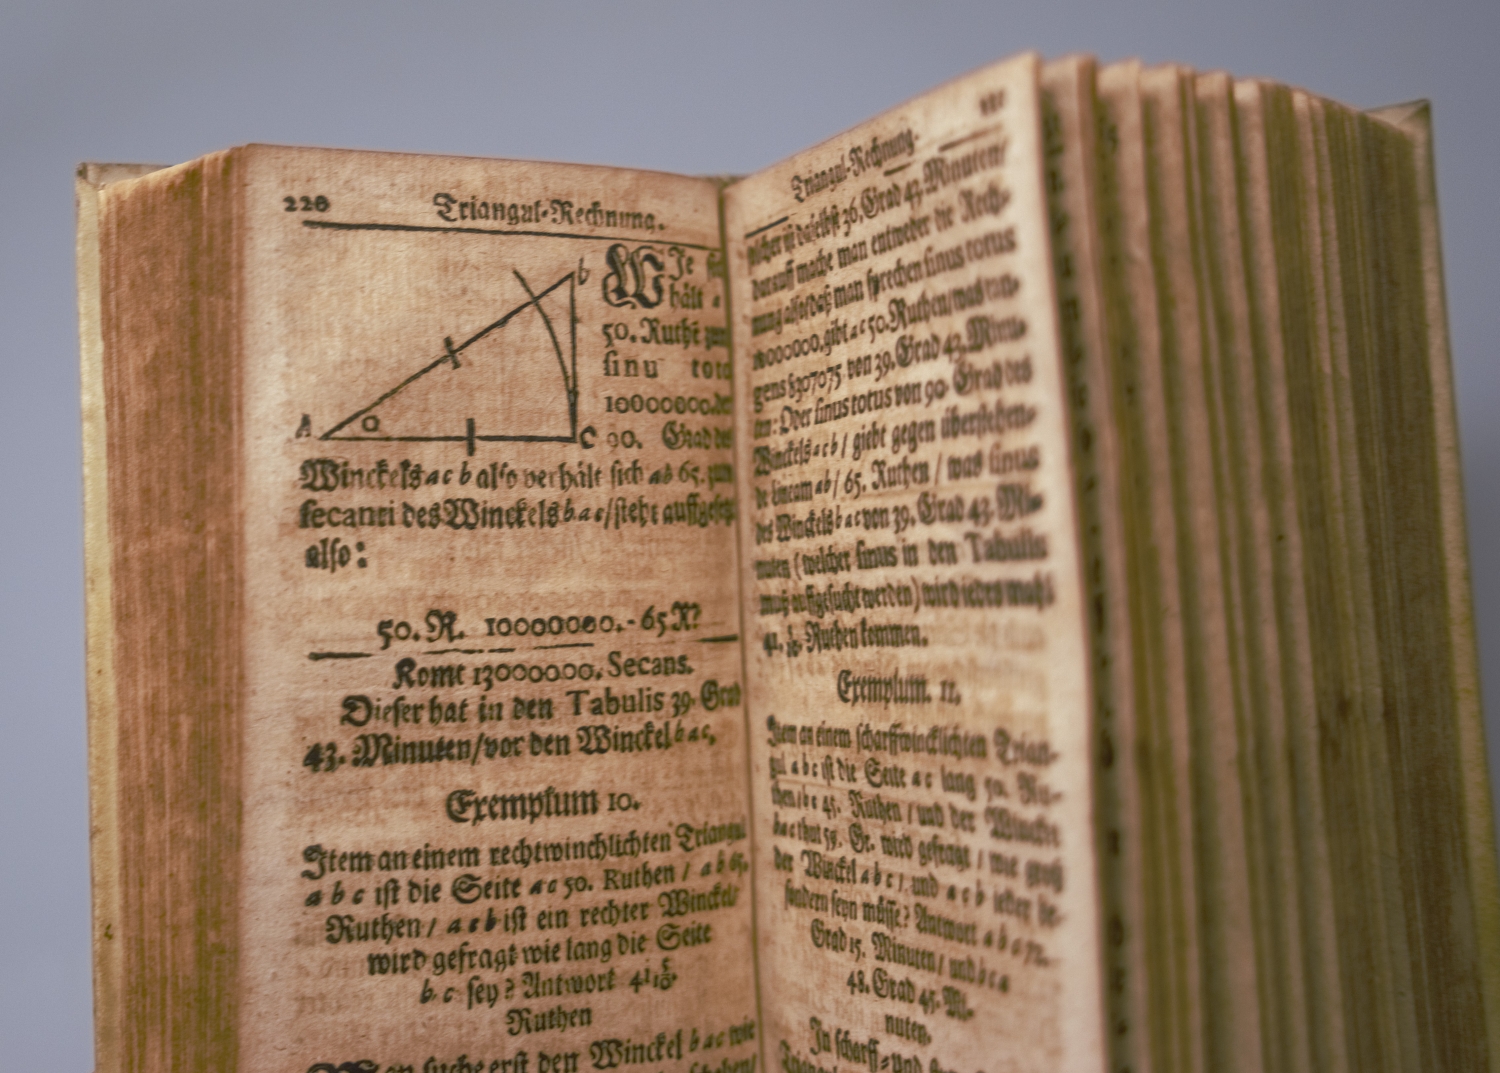 220
Triangul-Rechnung.
b
A
o
C
WJe sich
hält a
50. Ruthē zum
sinu toto
10000000. der
90. Grad des
Winckels a c b also verhält sich ab 65. zum
secanti des Winckels b a c / steht auffgesetzt
also:
50. R. 10000000. - 65 R?
Komt 13000000. Secans.
Dieser hat in den Tabulis 39. Grad
43. Minuten / vor den Winckel b a c,
Exemplum 10.
Item an einem rechtwinchlichten Triangul
a b c ist die Seite a c 50. Ruthen / a b 65.
Ruthen / a c b ist ein rechter Winckel /
wird gefragt wie lang die Seite
b c sey? Antwort 41 5/10.
Ruthen
suche erst den Winckel b a c wie
Triangul-Rechnung.
welcher ist daselbst 36. Grad 43. Minuten /
darauff mache man entweder die Rech-
nung also / daß man sprechen sinus totus
10000000. gibt a c 50. Ruthen / was tan-
gens 8307075 von 39. Grad 43. Minu-
ten: Oder sinus totus von 90. Grad des
Winckels a c b / giebt gegen überstehen-
de lineam ab / 65. Ruthen / was sinus
des Winckels b a c von 39. Grad 43. Mi-
nuten (welcher sinus in den Tabulis
muß auffgesucht werden) wird jedes mahl
41. Ruthen kommen.
Exemplum. 11.
Item an einem scharffwincklichten Trian-
gul a b c ist die Seite a c lang 50. Ru-
then / b c 45. Ruthen / und der Winckel
b a c thut 59. Gr. wird gefragt / wie groß
der Winckel a b c / und a c b jeder be-
sondern seyn müsse? Antwort a b c 72.
Grad 15. Minuten / und b c a
48. Grad 45. Mi-
nuten.
In scharff- und